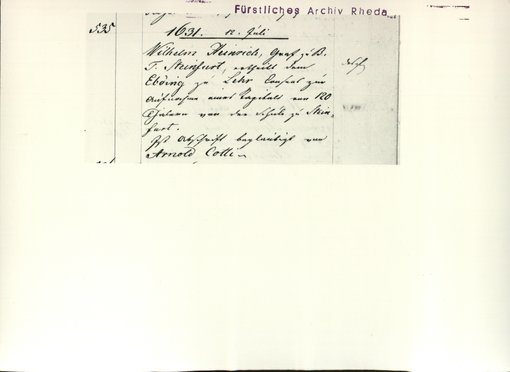 Fürstliches Archiv Rheda
535
1631. 12. Juli
Wilhelm Heinrich, Graf zu B.
T. Steinfurt, ertheilt dem
Ebbing zu Lehr Consens zur
Aufnahme eines Kapitals von 120
Thalern von der Schule zu Stein-
furt.
Ist Abschrift beglaubigt von
Arnold Cotti